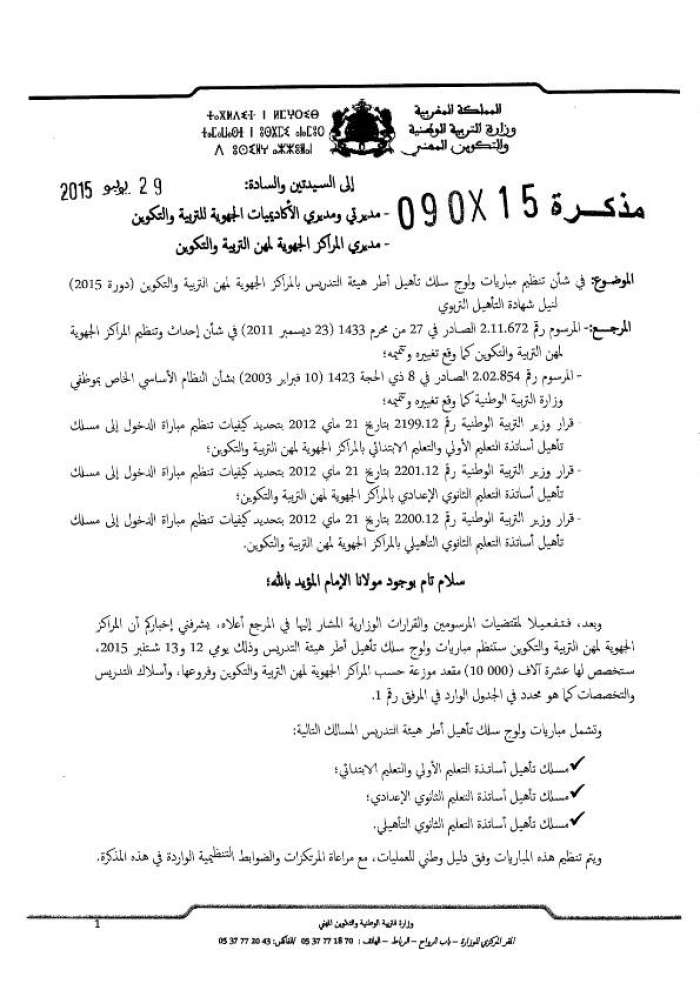 المملكة المغربية
وزارة التربية الوطنية
والتكوين المهني
ⵜⴰⴳⵍⴷⵉⵜ ⵏ ⵍⵎⵖⵔⵉⴱ
ⵜⴰⵎⴰⵡⴰⵙⵜ ⵏ ⵓⵙⴳⵎⵉ ⴰⵏⴰⵎⵓⵔ
ⴷ ⵓⵙⵎⵓⵜⵜⴳ ⴰⵣⵣⵓⵍⴰⵏ
29 يوليو 2015
مذكرة 090X15
إلى السيدتين والسادة:
- مديرتي ومديري الأكاديميات الجهوية للتربية والتكوين
- مديري المراكز الجهوية لمهن التربية والتكوين
الموضوع: في شأن تنظيم مباريات ولوج سلك تأهيل أطر هيئة التدريس بالمراكز الجهوية لمهن التربية والتكوين (دورة 2015)
لنيل شهادة التأهيل التربوي
المرجع:- المرسوم رقم 2.11.672 الصادر في 27 من محرم 1433 (23 ديسمبر 2011) في شأن إحداث وتنظيم المراكز الجهوية
لمهن التربية والتكوين كما وقع تغييره وتتميمه؛
- المرسوم رقم 2.02.854 الصادر في 8 ذي الحجة 1423 (10 فبراير 2003) بشأن النظام الأساسي الخاص بموظفي
وزارة التربية الوطنية كما وقع تغييره وتتميمه؛
- قرار وزير التربية الوطنية رقم 2199.12 بتاريخ 21 ماي 2012 بتحديد كيفيات تنظيم مباراة الدخول إلى مسلك
تأهيل أساتذة التعليم الأولي والتعليم الابتدائي بالمراكز الجهوية لمهن التربية والتكوين؛
- قرار وزير التربية الوطنية رقم 2201.12 بتاريخ 21 ماي 2012 بتحديد كيفيات تنظيم مباراة الدخول إلى مسلك
تأهيل أساتذة التعليم الثانوي الإعدادي بالمراكز الجهوية لمهن التربية والتكوين؛
- قرار وزير التربية الوطنية رقم 2200.12 بتاريخ 21 ماي 2012 بتحديد كيفيات تنظيم مباراة الدخول إلى مسلك
تأهيل أساتذة التعليم الثانوي التأهيلي بالمراكز الجهوية لمهن التربية والتكوين.
سلام تام بوجود مولانا الإمام المؤيد بالله؛
وبعد، فتفعيلا لمقتضيات المرسومين والقرارات الوزارية المشار إليها في المرجع أعلاه، يشرفني إخباركم أن المراكز
الجهوية لمهن التربية والتكوين ستنظم مباريات ولوج سلك تأهيل أطر هيئة التدريس وذلك يومي 12 و13 شتنبر 2015،
ستخصص لها عشرة آلاف (10 000) مقعد موزعة حسب المراكز الجهوية لمهن التربية والتكوين وفروعها، وأسلاك التدريس
والتخصصات كما هو محدد في الجدول الوارد في المرفق رقم 1.
وتشمل مباريات ولوج سلك تأهيل أطر هيئة التدريس المسالك التالية:
✓ مسلك تأهيل أساتذة التعليم الأولي والتعليم الابتدائي؛
✓ مسلك تأهيل أساتذة التعليم الثانوي الإعدادي؛
✓ مسلك تأهيل أساتذة التعليم الثانوي التأهيلي.
ويتم تنظيم هذه المباريات وفق دليل وطني للعمليات، مع مراعاة المرتكزات والضوابط التنظيمية الواردة في هذه المذكرة.
1
وزارة التربية الوطنية والتكوين المهني
المقر المركزي للوزارة – باب الرواح – الرباط – الهاتف: 05 37 77 18 70 /الفاكس: 05 37 77 20 43